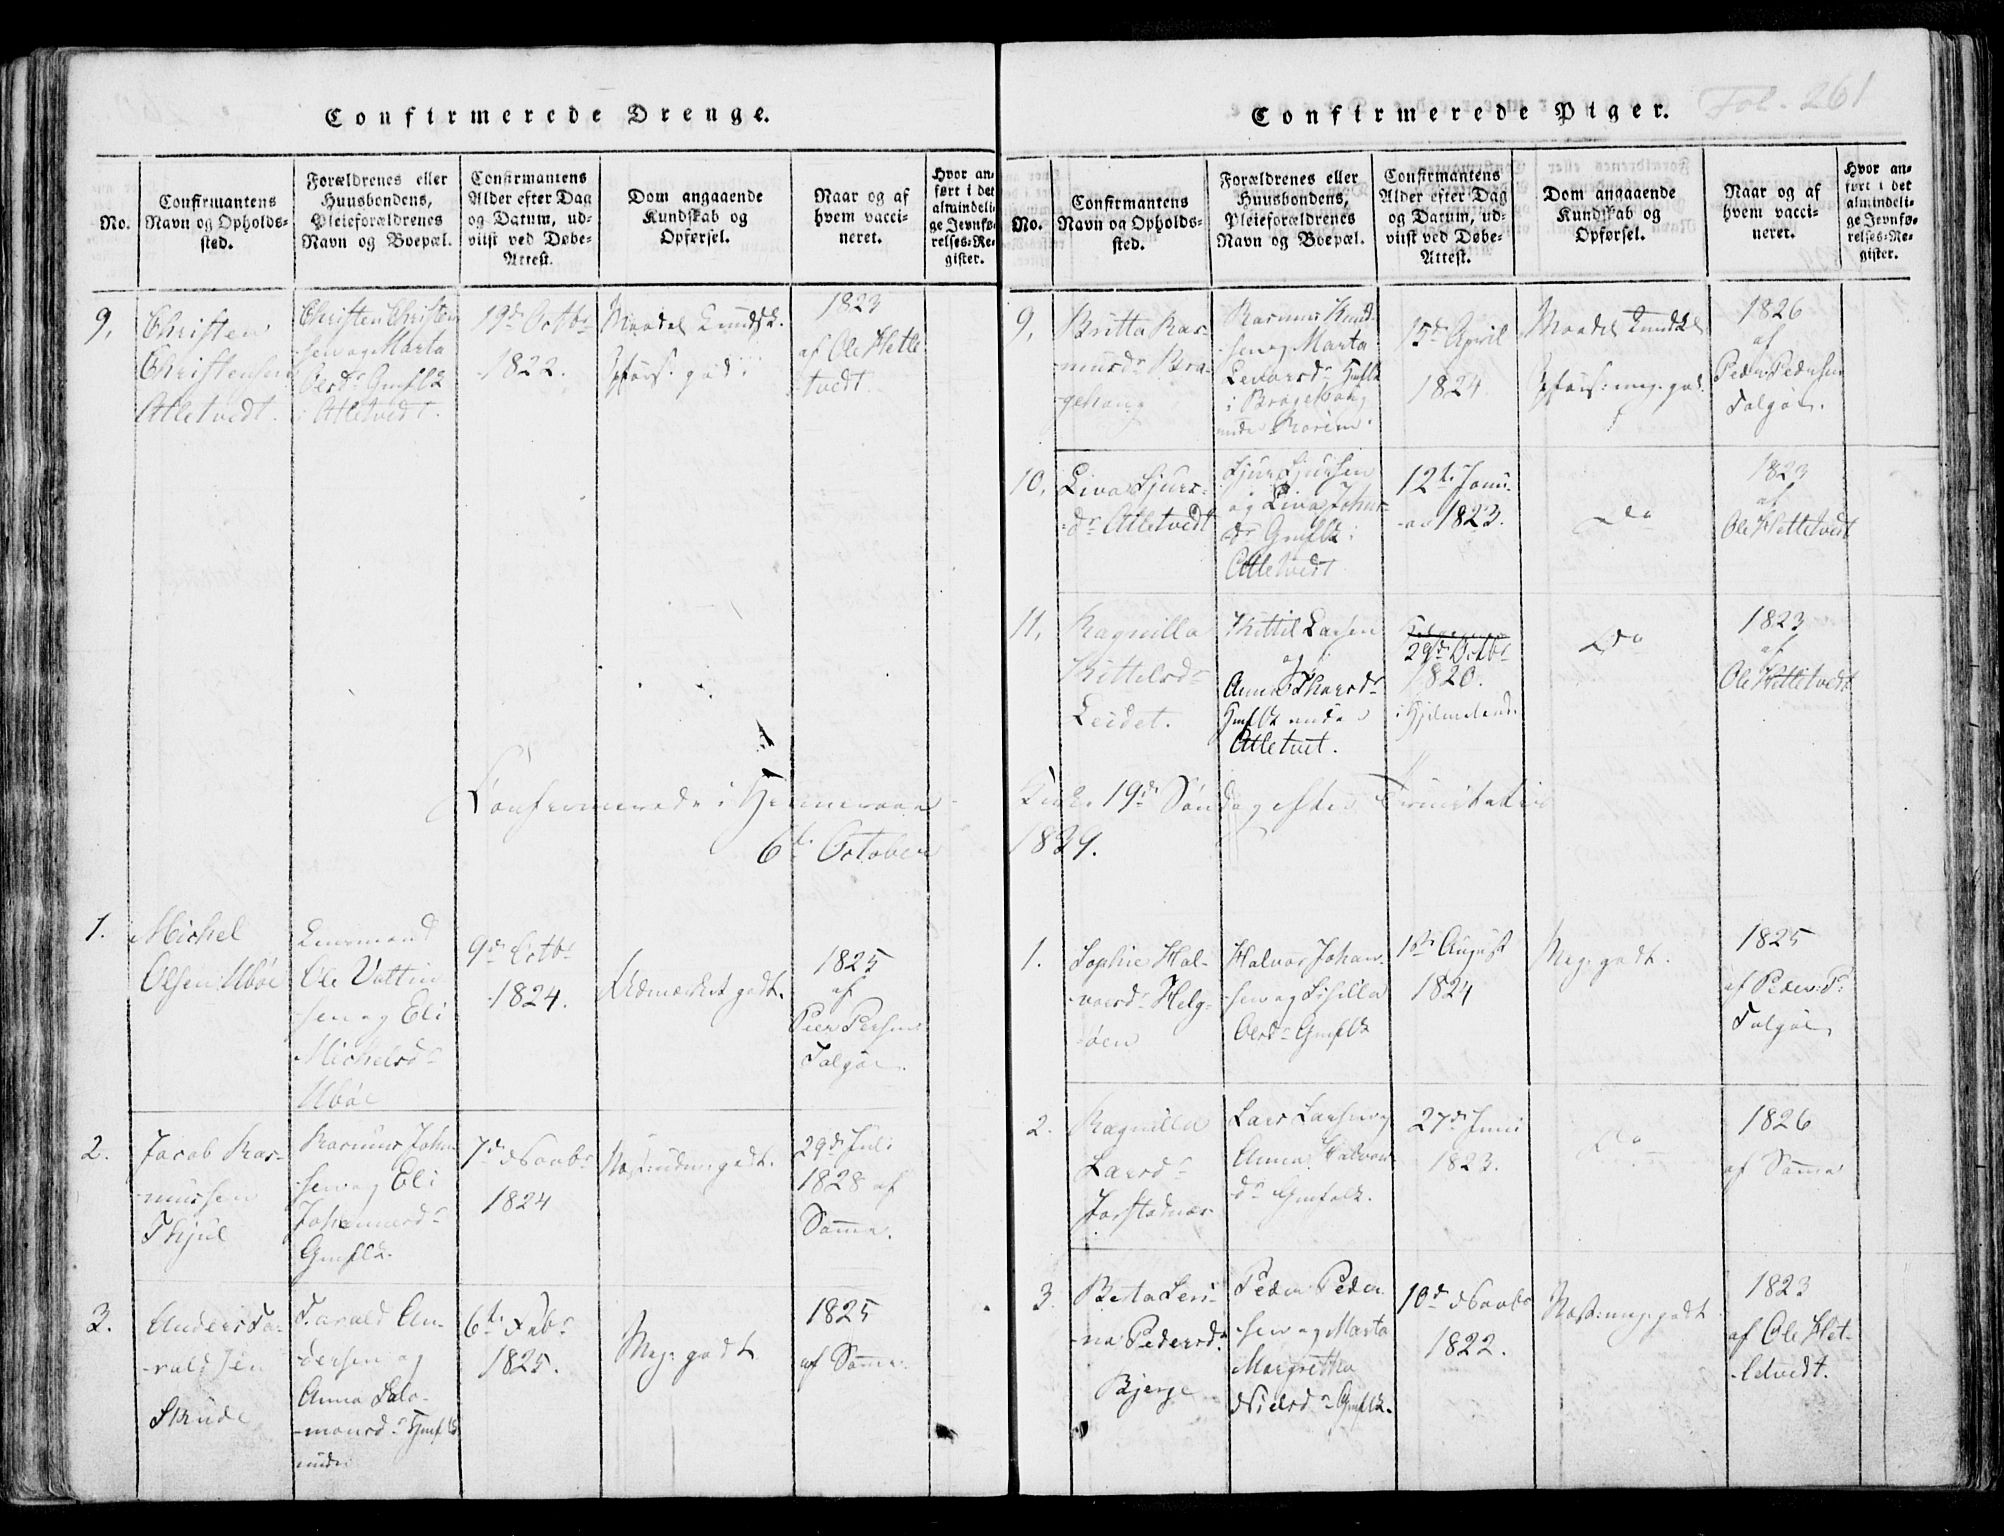 Confirmerede Drenge.
No.
Confirmantens
Navn og Opholds-
sted.
Forældrenes eller
Huusbondens,
Pleieforældrenes
Navn og Boepæl.
Confirmantens
Alder efter Dag
og Datum, ud-
viist ved Døbe-
Attest.
Dom angaaende
Kundskab og
Opførsel.
Naar og af
hvem vacci-
neret.
Hvor an-
ført i det
almindeli-
ge Jevnfø-
relses-Re-
gister.
9.
Christen
Christensen
Atletvedt.
Christen Christen
sen og Marta
Olsdr Gmflk
i Atletvedt.
19d Octbr
1822.
Maadel. Kundsk.
Opførs. god.
1823
af Ole Hetle
tvedt.
Confirmerede i
6te October
1.
Michel
Olsen Ubøe
Ole
sen og Eli
Michelsdr
Ubøe
9d Octbr
1824.
Udmærket godt.
1825
af
Peer Persen
Talgøe.
2.
Jacob Ras-
mussen
Rasmus Joha
sen og Eli
Johannesdr
Gmflk.
7d Novbr
1824
29d Juli
1828 af
Samme.
3.
Anders Ta-
rald sen
Skude
Tarald An-
dersen og
Anna Salo-
monsdr Gmflk
under
6te Febr
1825.
Meg. godt
1825
af Samme
Confirmerede Piger.
Fol. 261
No.
Confirmantens
Navn og Opholds-
sted.
Forældrenes eller
Huusbondens,
Pleieforældrenes
Navn og Boepæl.
Confirmantens
Alder efter Dag
og Datum, ud-
viist ved Døbe-
Attest.
Dom angaaende
Kundskab og
Opførsel.
Naar og af
hvem vacci-
neret.
Hvor an-
ført i det
almindeli-
ge Jevnfø-
relses-Re-
gister.
9.
Britta Ras-
musdr Bra-
Rasmus Knud-
sen og Marta
Gmflk
i
under
15d April
1824
Maadel Kundsk
Opførs: meg. god.
1826
af
Peder Pedersen
Talgøe.
10.
Liva Sjurs-
dr Atletvedt
Sjur Sjursen
og Liva Johns-
dr Gmflk i
Atletvedt
12te Janu-
ar 1823.
Do
1823
af
Ole Hetletvedt
11.
Ragnilla
Kittelsdr
Leidet.
Kittil Larsen
og
Anna
Gmflk under
Atletvet.
29d Octbr
1820.
i Hjelmeland
Do
1823
af
Ole Hetletvedt
Kirke 19d Søndag efter Trinitatis
1839.
1.
Sophie Hal-
vorsdr Helg-
øen
Halvor Johan-
sen og Sisilla
Olsdr Gmflk
1ste August
1824
Meg. godt.
1825
af Peder P.
Talgøe
2.
Ragnilla
Larsdr
Lars Larsen og
Anna Halvors
dr Gmfolk.
27d Juni
1823.
Do
1826
af Samme
3
Berta Seri-
na Pedersdr
Bjerge
Peder Peder
sen og Marta
Margretha
Nielsdr Gmflk.
10d Novbr
1822.
1823
af Ole Het-
letvedt.